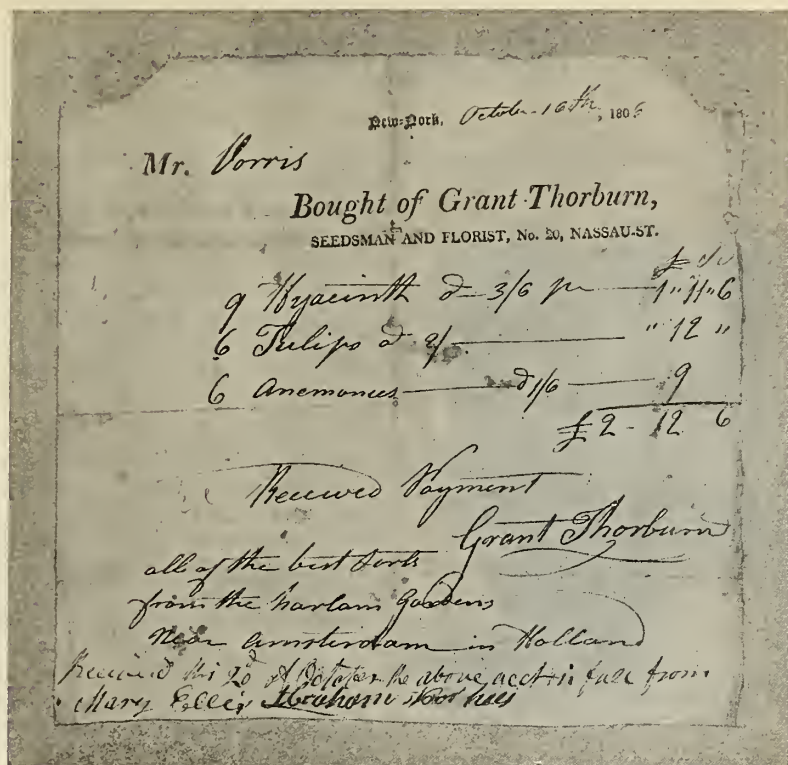 New-York, October 16th, 1806
Mr. Vorris
Bought of Grant Thorburn,
SEEDSMAN AND FLORIST, No. 20, NASSAU-ST.
£ s d
9 Hyacinth @ 3/6 pr 1 " 11 " 6
6 Tulips @ 2/ " 12 "
6 Anemones @ 1/6 9
£2 - 12 6
Received Payment
Grant Thorburn
all of the best sorts
from the harlam Gardens
near amsterdam in Holland
Received this 20 of October the above acct in full from
Mary Ellis Abraham